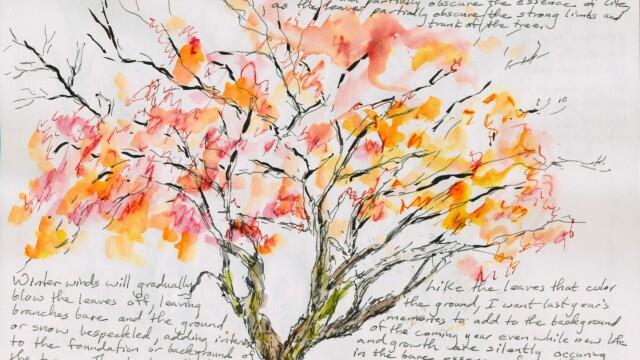 partially obscure the essence of life,
as the leaves partially obscure the strong limbs and
trunk of the tree.
Winter winds will gradually
blow the leaves off, leaving
branches bare and the ground
or snow bespeckled, adding interest
to the foundation or background of
the
Like the leaves that color
the ground, I want last year's
memories to add to the background
of the coming year even while new life
and growth are silently
in the bare